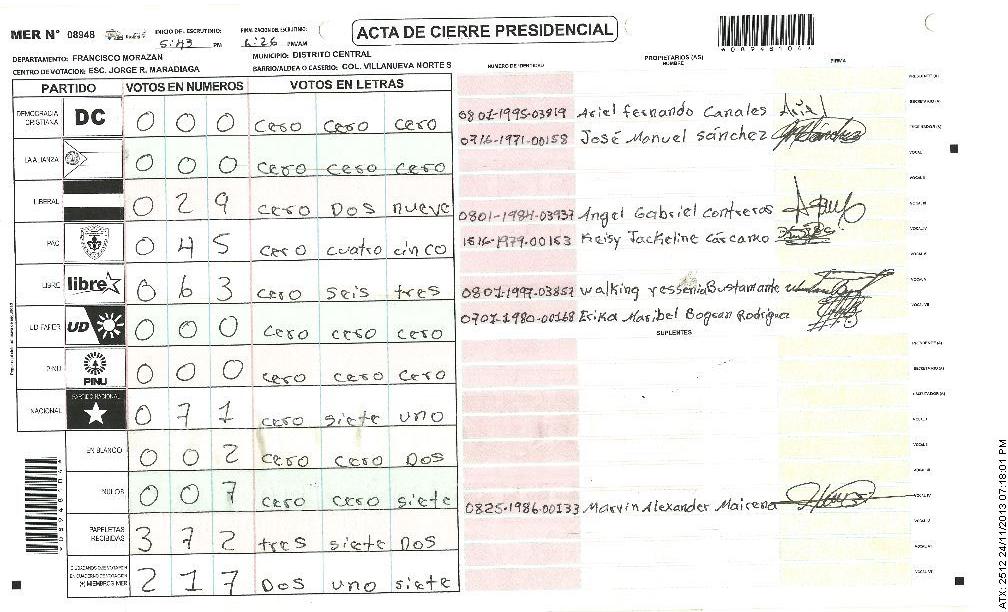 MER N° 08948
INICIO DEL ESCRUTINIO: 5:43 PM
FINALIZACION DEL ESCRUTINIO: 6:26 PM/AM
ACTA DE CIERRE PRESIDENCIAL
DEPARTAMENTO: FRANCISCO MORAZAN
MUNICIPIO: DISTRITO CENTRAL
CENTRO DE VOTACION: ESC. JORGE R. MARADIAGA
BARRIO/ALDEA O CASERIO: COL. VILLANUEVA NORTE S
NUMERO DE IDENTIDAD PROPIETARIOS (AS) NOMBRE FIRMA
PARTIDO VOTOS EN NUMEROS VOTOS EN LETRAS
DEMOCRACIA CRISTIANA DC 0 0 0 cero cero cero
LA ALIANZA 0 0 0 cero cero cero
LIBERAL 0 2 9 cero Dos nueve
PAC 0 4 5 cero cuatro cinco
LIBRE libre 0 6 3 cero seis tres
UD FAPER UD 0 0 0 cero cero cero
PINU PINU 0 0 0 cero cero cero
NACIONAL PARTIDO NACIONAL 0 7 1 cero siete uno
EN BLANCO 0 0 2 cero cero Dos
NULOS 0 0 7 cero cero siete
PAPELETAS RECIBIDAS 3 7 2 tres siete Dos
CIUDADANOS QUE VOTARON EN CUADERNO DE VOTACION (+) MIEMBROS MER 2 1 7 Dos uno siete
0801-1995-03919 Ariel fernando Canales
0716-1971-00158 José Manuel Sánchez
0801-1984-03937 Angel Gabriel Contreras
1516-1979-00153 Keisy Jackeline Cárcamo
0801-1997-03857 walking yessenia Bustamante
0701-1980-00168 Erika Maribel Bogran Rodriguez
SUPLENTES
0825-1986-00133 Marvin Alexander Mairena
PRESIDENTE (A)
SECRETARIO (A)
ESCRUTADOR (A)
VOCAL I
VOCAL II
VOCAL III
VOCAL IV
VOCAL V
VOCAL VI
VOCAL VII
PRESIDENTE (A)
SECRETARIO (A)
ESCRUTADOR (A)
VOCAL I
VOCAL II
VOCAL III
VOCAL IV
VOCAL V
VOCAL VI
VOCAL VII
ATX: 2512 24/11/2013 07:18:01 PM